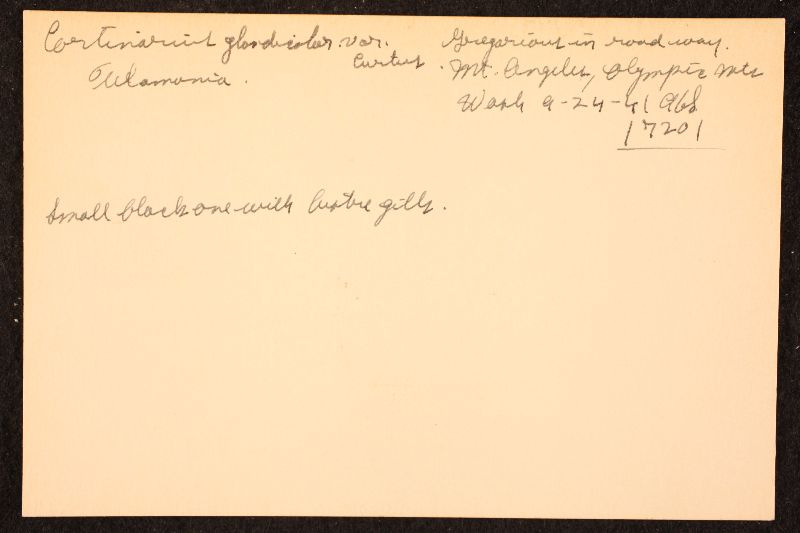 Cortinarius glandicolor var.
curtus
Telamonia.
Gregarious in road way.
Mt. Angeles, Olympic Mts
Wash 9-24-41 AHS
17201
Small black one with lustre gills.